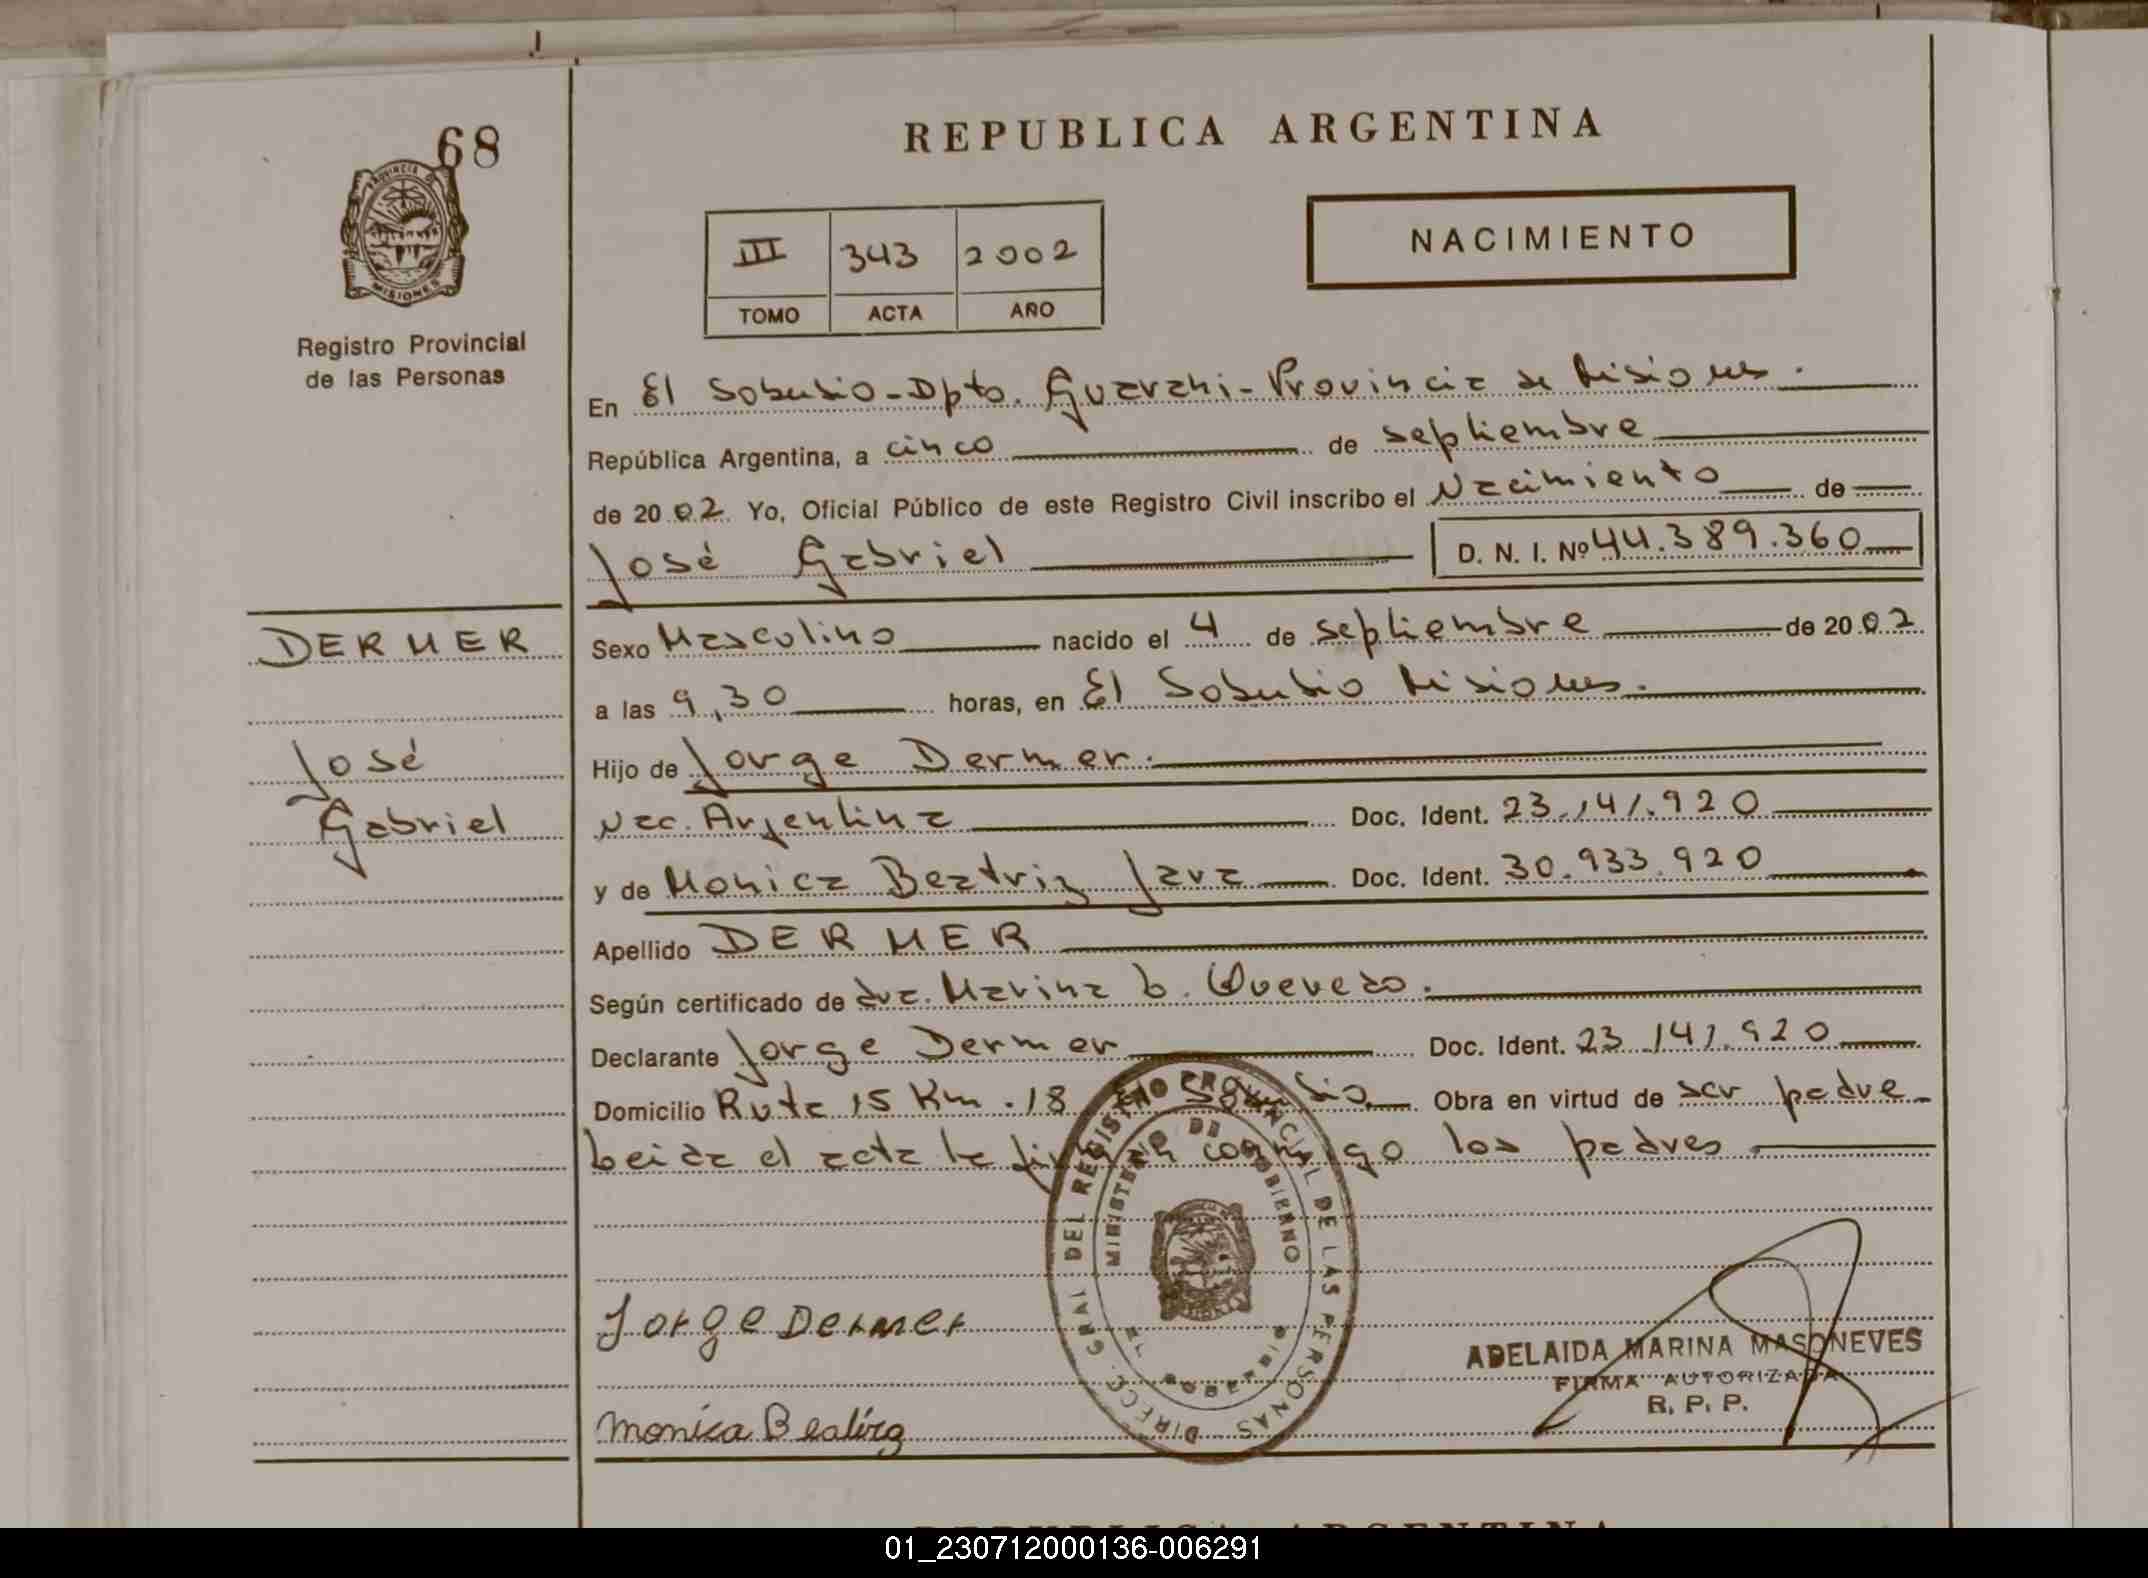 68
PROVINCIA DE
MISIONES
Registro Provincial
de las Personas
REPUBLICA ARGENTINA
III 343 2002
TOMO ACTA AÑO
NACIMIENTO
En El Soberbio - Dpto. Guarani - Provincia de Misiones.
República Argentina, a cinco de septiembre
de 2002 Yo, Oficial Público de este Registro Civil inscribo el Nacimiento de
José Gabriel D. N. I. Nº 44.389.360
DERMER
José
Gabriel
Sexo Masculino nacido el 4 de septiembre de 2002
a las 9,30 horas, en El Soberbio Misiones.
Hijo de Jorge Dermer.
Nac. Argentina Doc. Ident. 23.141.920
y de Monica Beatriz Jara Doc. Ident. 30.933.920
Apellido DERMER
Según certificado de dra. Marina L. Quevedo.
Declarante Jorge Dermer Doc. Ident. 23.141.920
Domicilio Ruta 15 Km. 18 Obra en virtud de ser padre
Leida el acta la firman conmigo los padres
DIREC. GRAL DEL REGISTRO PROVINCIAL DE LAS PERSONAS
MINISTERIO DE GOBIERNO
Jorge Dermer
ADELAIDA MARINA MASONEVES
FIRMA AUTORIZADA
R. P. P.
monica Beatirz
REPUBLICA ARGENTINA
01_230712000136-006291